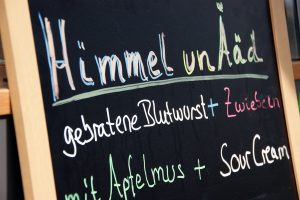 Himmel un Ääd
gebratene Blutwurst + Zwiebeln
mit Apfelmus + Sour Cream